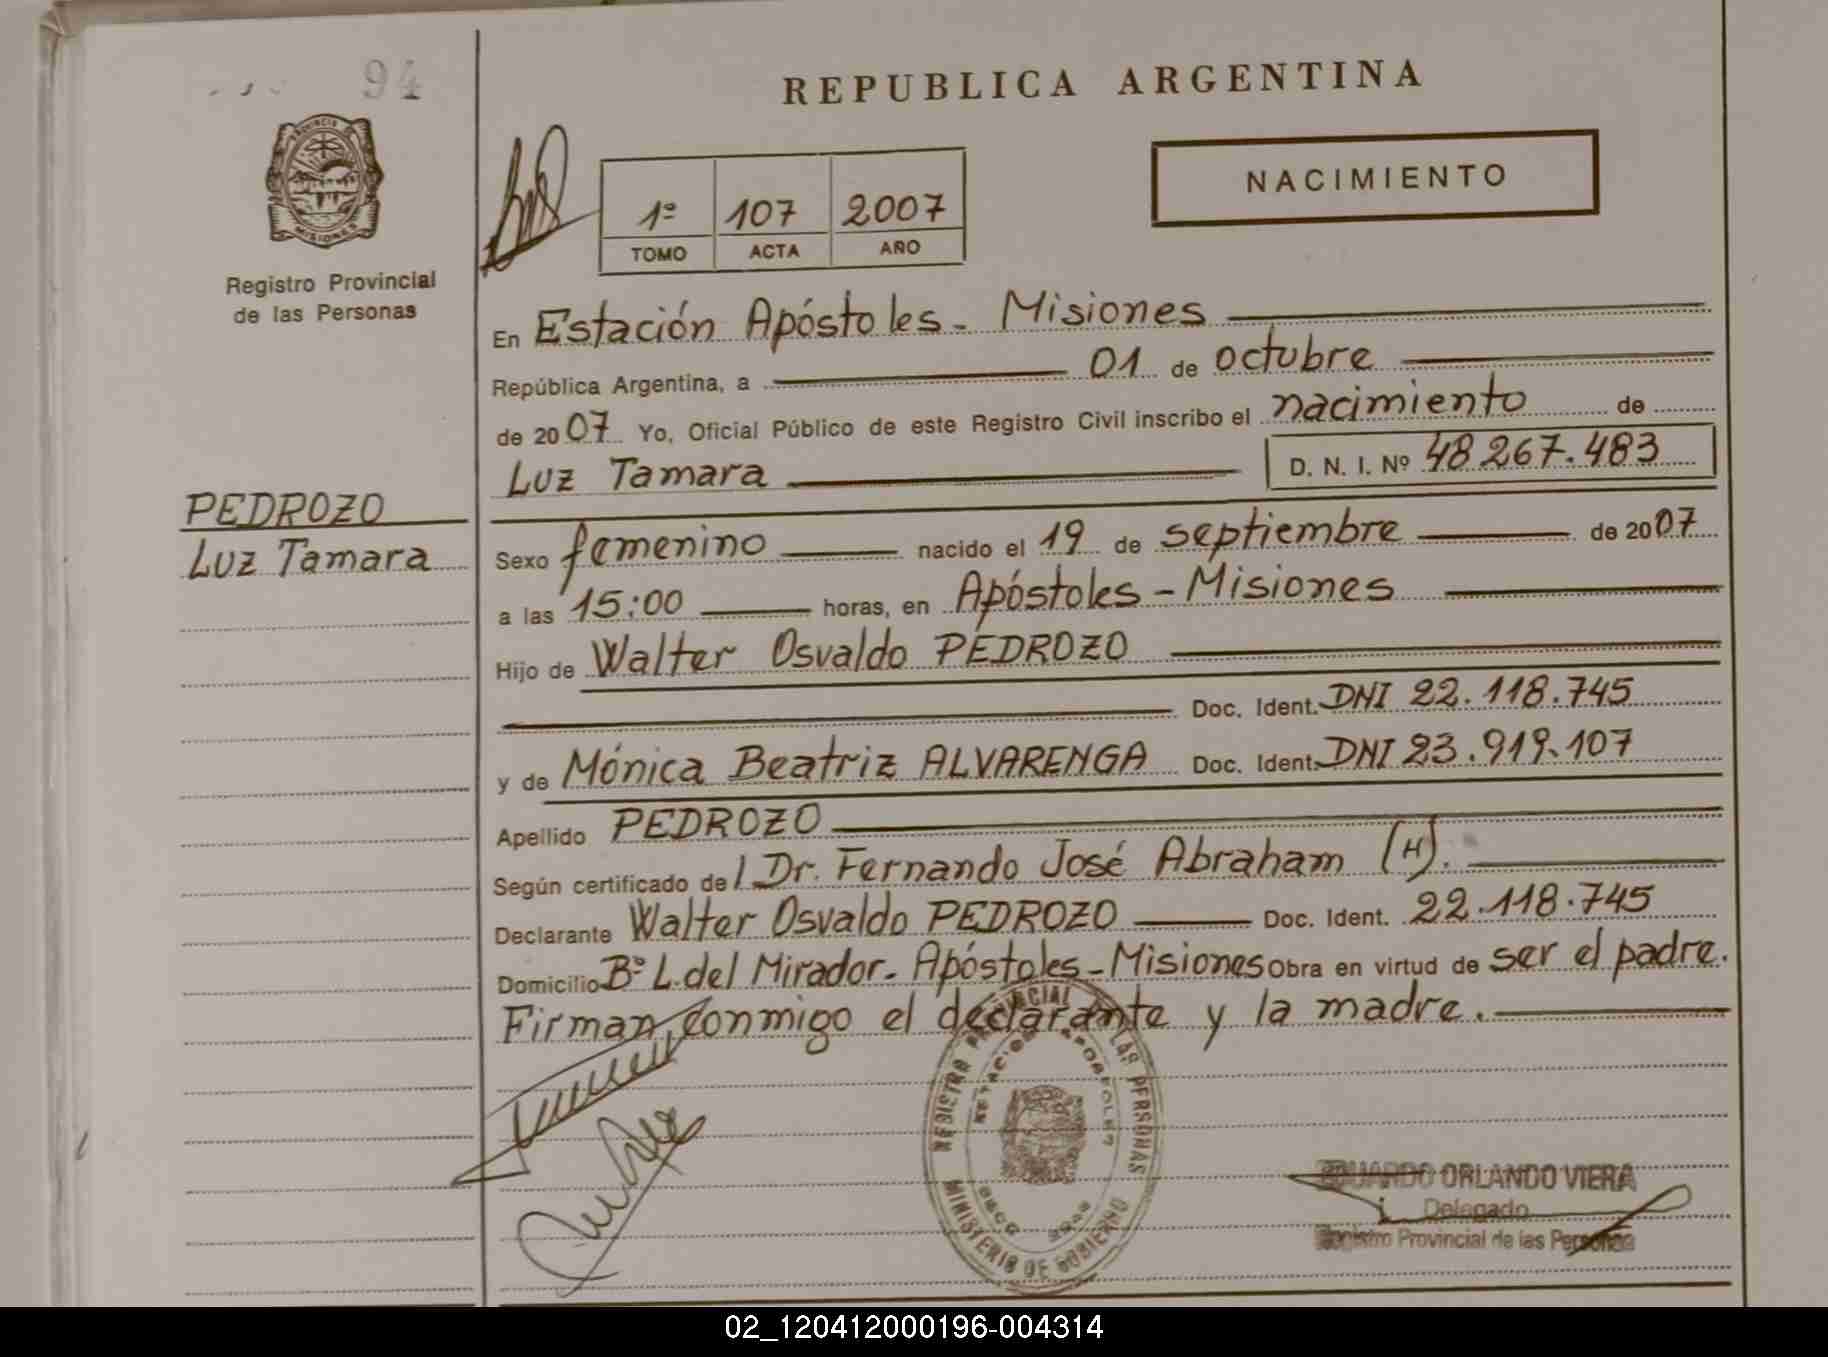 94
REPUBLICA ARGENTINA
NACIMIENTO
1º 107 2007
TOMO ACTA AÑO
PROVINCIA DE
MISIONES
Registro Provincial
de las Personas
En Estación Apóstoles - Misiones
República Argentina, a 01 de octubre
de 2007 Yo, Oficial Público de este Registro Civil inscribo el nacimiento de
Luz Tamara D. N. I. Nº 48 267.483
PEDROZO
Luz Tamara
Sexo femenino nacido el 19 de septiembre de 2007
a las 15:00 horas, en Apóstoles - Misiones
Hijo de Walter Osvaldo PEDROZO
Doc. Ident. DNI 22.118.745
y de Mónica Beatriz ALVARENGA Doc. Ident. DNI 23.919.107
Apellido PEDROZO
Según certificado de / Dr. Fernando José Abraham (H).
Declarante Walter Osvaldo PEDROZO Doc. Ident. 22.118.745
Domicilio Bº L. del Mirador. Apóstoles - Misiones Obra en virtud de ser el padre.
Firman conmigo el declarante y la madre.
REGISTRO PROVINCIAL DE LAS PERSONAS
ESTACION APOSTOLES
MINISTERIO DE GOBIERNO
EDUARDO ORLANDO VIERA
Delegado
Registro Provincial de las Personas
02_120412000196-004314